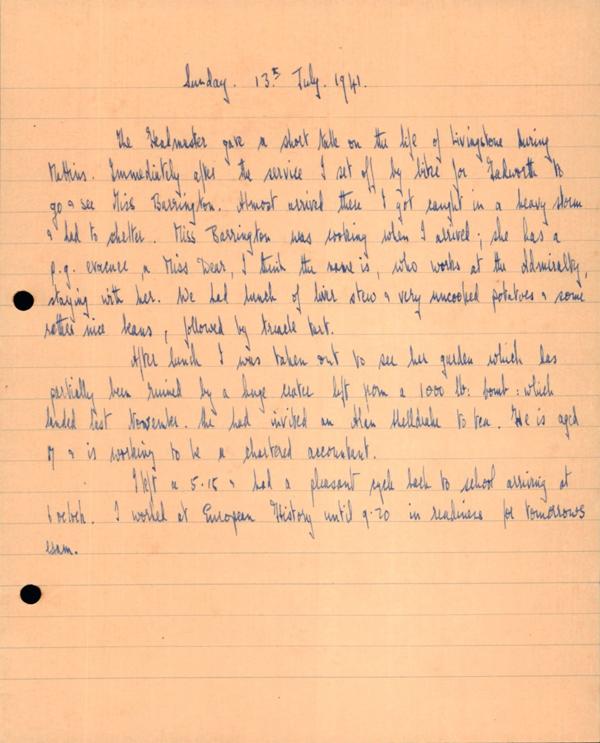 Sunday. 13th July. 1941.
The Headmaster gave a short talk on the life of Livingstone during
Mattins. Immediately after the service I set off by bike for Tadworth to
go & see Miss Barrington. Almost arrived there I got caught in a heavy storm
& had to shelter. Miss Barrington was cooking when I arrived; she has a
p.g. evacuee, a Miss Wear, I think the name is, who works at the Admiralty,
staying with her. We had lunch of liver stew & very uncooked potatoes & some
rather nice beans, followed by treacle tart.
After lunch I was taken out to see her garden which has
partially been ruined by a huge crater left from a 1000 lb: bomb: which
landed last November. She had invited an Alan to tea. He is aged
17 & is working to be a chartered accountant.
I left a 5.15 & had a pleasant cycle back to school arriving at
6 oclock. I worked at European History until 9.20 in readiness for tomorrows
exam.